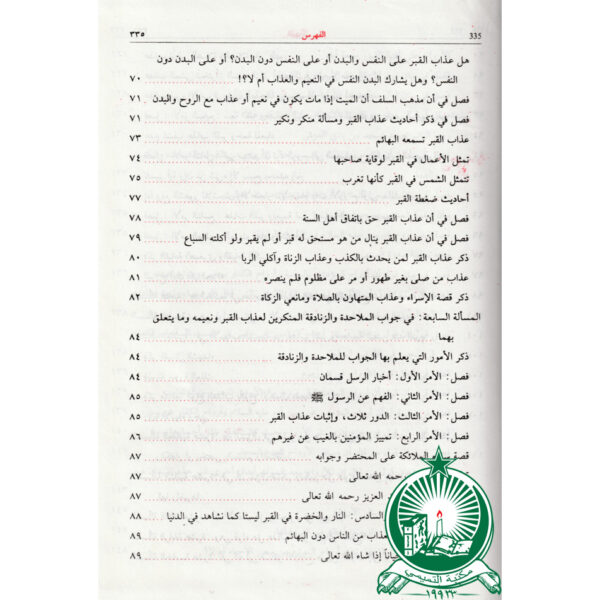 ٣٣٥ الفهرس 335
هل عذاب القبر على النفس والبدن أو على النفس دون البدن؟ أو على البدن دون
النفس؟ وهل يشارك البدن النفس في النعيم والعذاب أم لا؟! ٧٠
فصل في أن مذهب السلف أن الميت إذا مات يكون في نعيم أو عذاب مع الروح والبدن ٧١
فصل في ذكر أحاديث عذاب القبر ومسألة منكر ونكير ٧١
عذاب القبر تسمعه البهائم ٧٣
تمثل الأعمال في القبر لوقاية صاحبها ٧٤
تتمثل الشمس في القبر كأنها تغرب ٧٥
أحاديث ضغطة القبر ٧٧
فصل في أن عذاب القبر حق باتفاق أهل السنة ٧٨
فصل في أن عذاب القبر ينال من هو مستحق له قبر أو لم يقبر ولو أكلته السباع ٧٩
ذكر عذاب القبر لمن يحدث بالكذب وعذاب الزناة وآكلي الربا ٨٠
عذاب من صلى بغير طهور أو مر على مظلوم فلم ينصره ٨١
ذكر قصة الإسراء وعذاب المتهاون بالصلاة ومانعي الزكاة ٨٢
المسألة السابعة: في جواب الملاحدة والزنادقة المنكرين لعذاب القبر ونعيمه وما يتعلق
بهما ٨٤
ذكر الأمور التي يعلم بها الجواب للملاحدة والزنادقة ٨٤
فصل: الأمر الأول: أخبار الرسل قسمان ٨٤
فصل: الأمر الثاني: الفهم عن الرسول ﷺ ٨٥
فصل: الأمر الثالث: الدور ثلاث، وإثبات عذاب القبر ٨٥
فصل: الأمر الرابع: تمييز المؤمنين بالغيب عن غيرهم ٨٦
الملائكة على المحتضر وجوابه ٨٧
رحمه الله تعالى ٨٧
العزيز رحمه الله تعالى ٨٧
السادس: النار والخضرة في القبر ليستا كما نشاهد في الدنيا ٨٨
عذاب من الناس دون البهائم ٨٩
إذا شاء الله تعالى ٨٩
مكتبة النسيمي
١٩٩٣